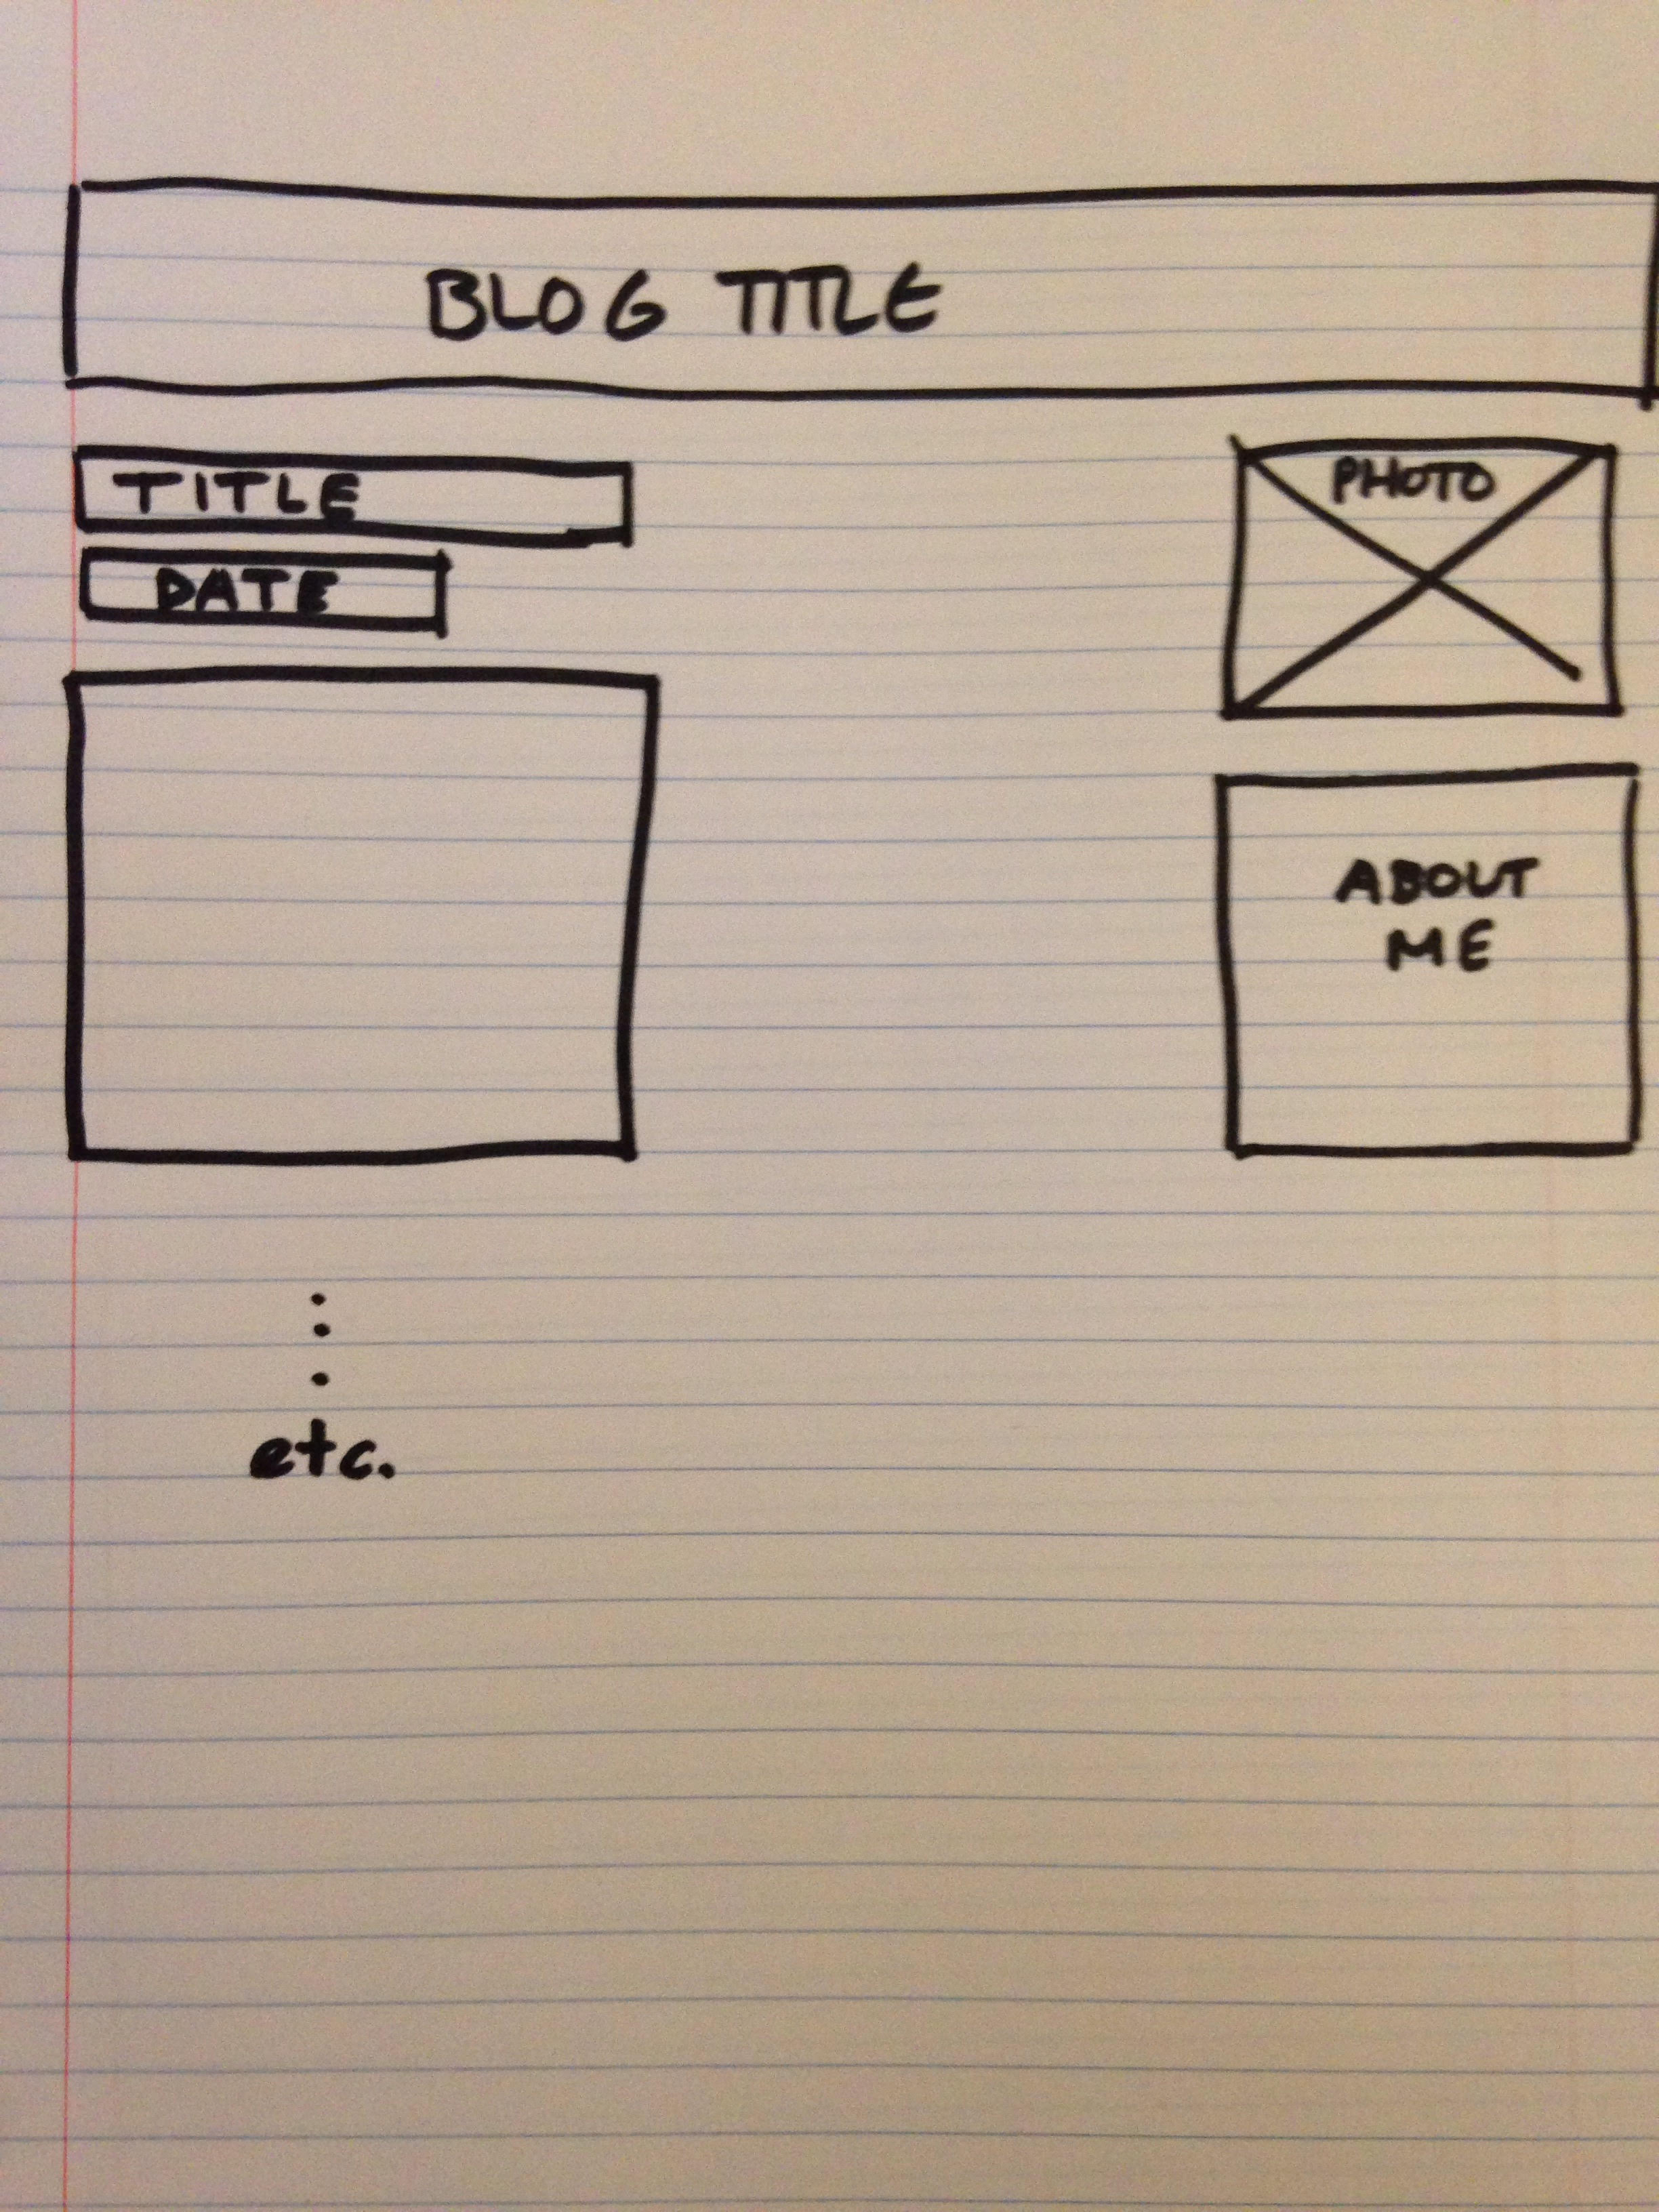 BLOG TITLE
TITLE
DATE
PHOTO
ABOUT
ME
etc.